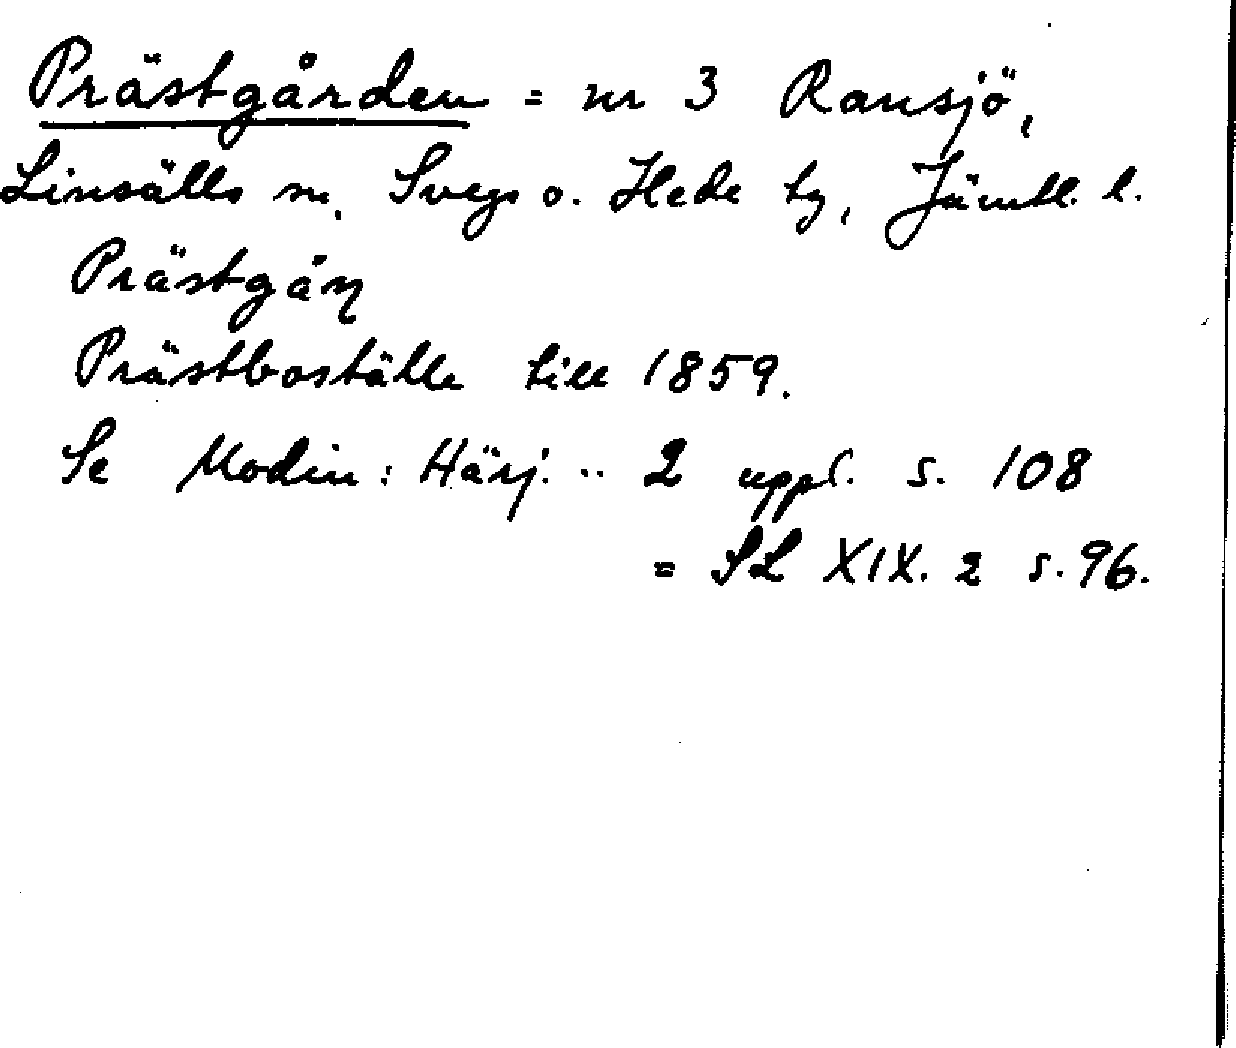 Prästgården = nr 3 Ransjö,
Linsälls sn, Svegs o. Hede tg, Jämtl. l.
Prästgåɳ
Prästboställe till 1859.
Se Modin: Härj. .. 2 uppl. s. 108
= SL XIX. 2 s. 96.